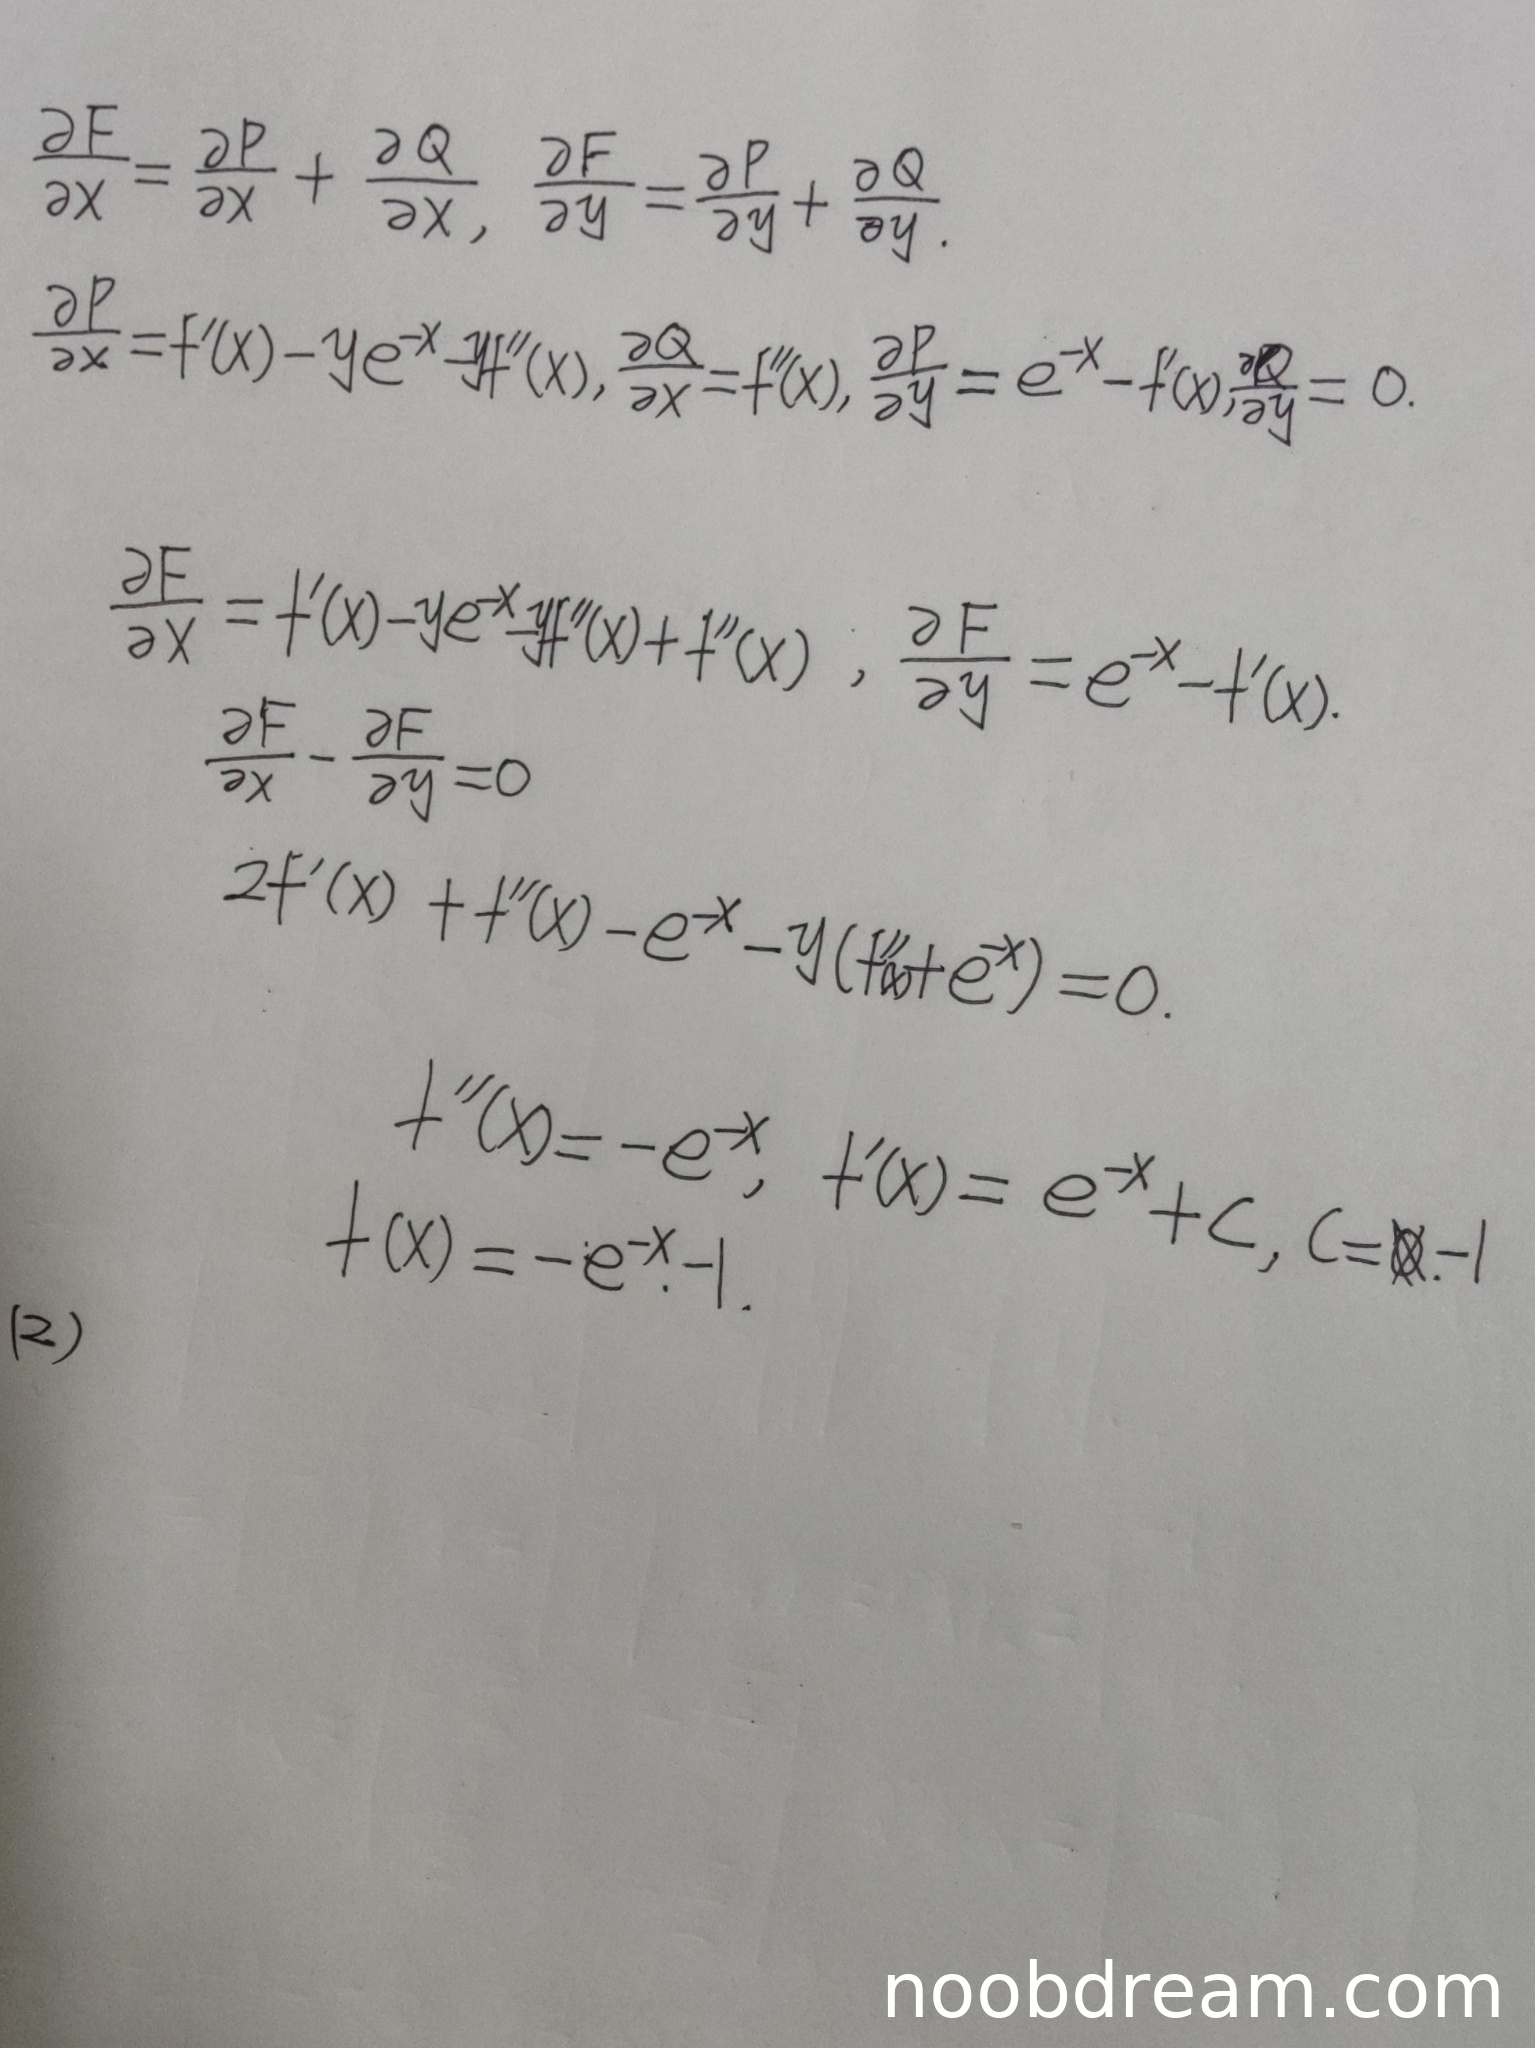 ∂F/∂x = ∂P/∂x + ∂Q/∂x, ∂F/∂y = ∂P/∂y + ∂Q/∂y.
∂P/∂x = f'(x) - ye^{-x} - yf''(x), ∂Q/∂x = f''(x), ∂P/∂y = e^{-x} - f'(x), ∂Q/∂y = 0.
∂F/∂x = f'(x) - ye^{-x} - yf''(x) + f''(x), ∂F/∂y = e^{-x} - f'(x).
∂F/∂x - ∂F/∂y = 0
2f'(x) + f''(x) - e^{-x} - y(f''(x) + e^{-x}) = 0.
f''(x) = -e^{-x}, f'(x) = e^{-x} + C, C = -1
f(x) = -e^{-x}. -1.
(2)
noobdream.com